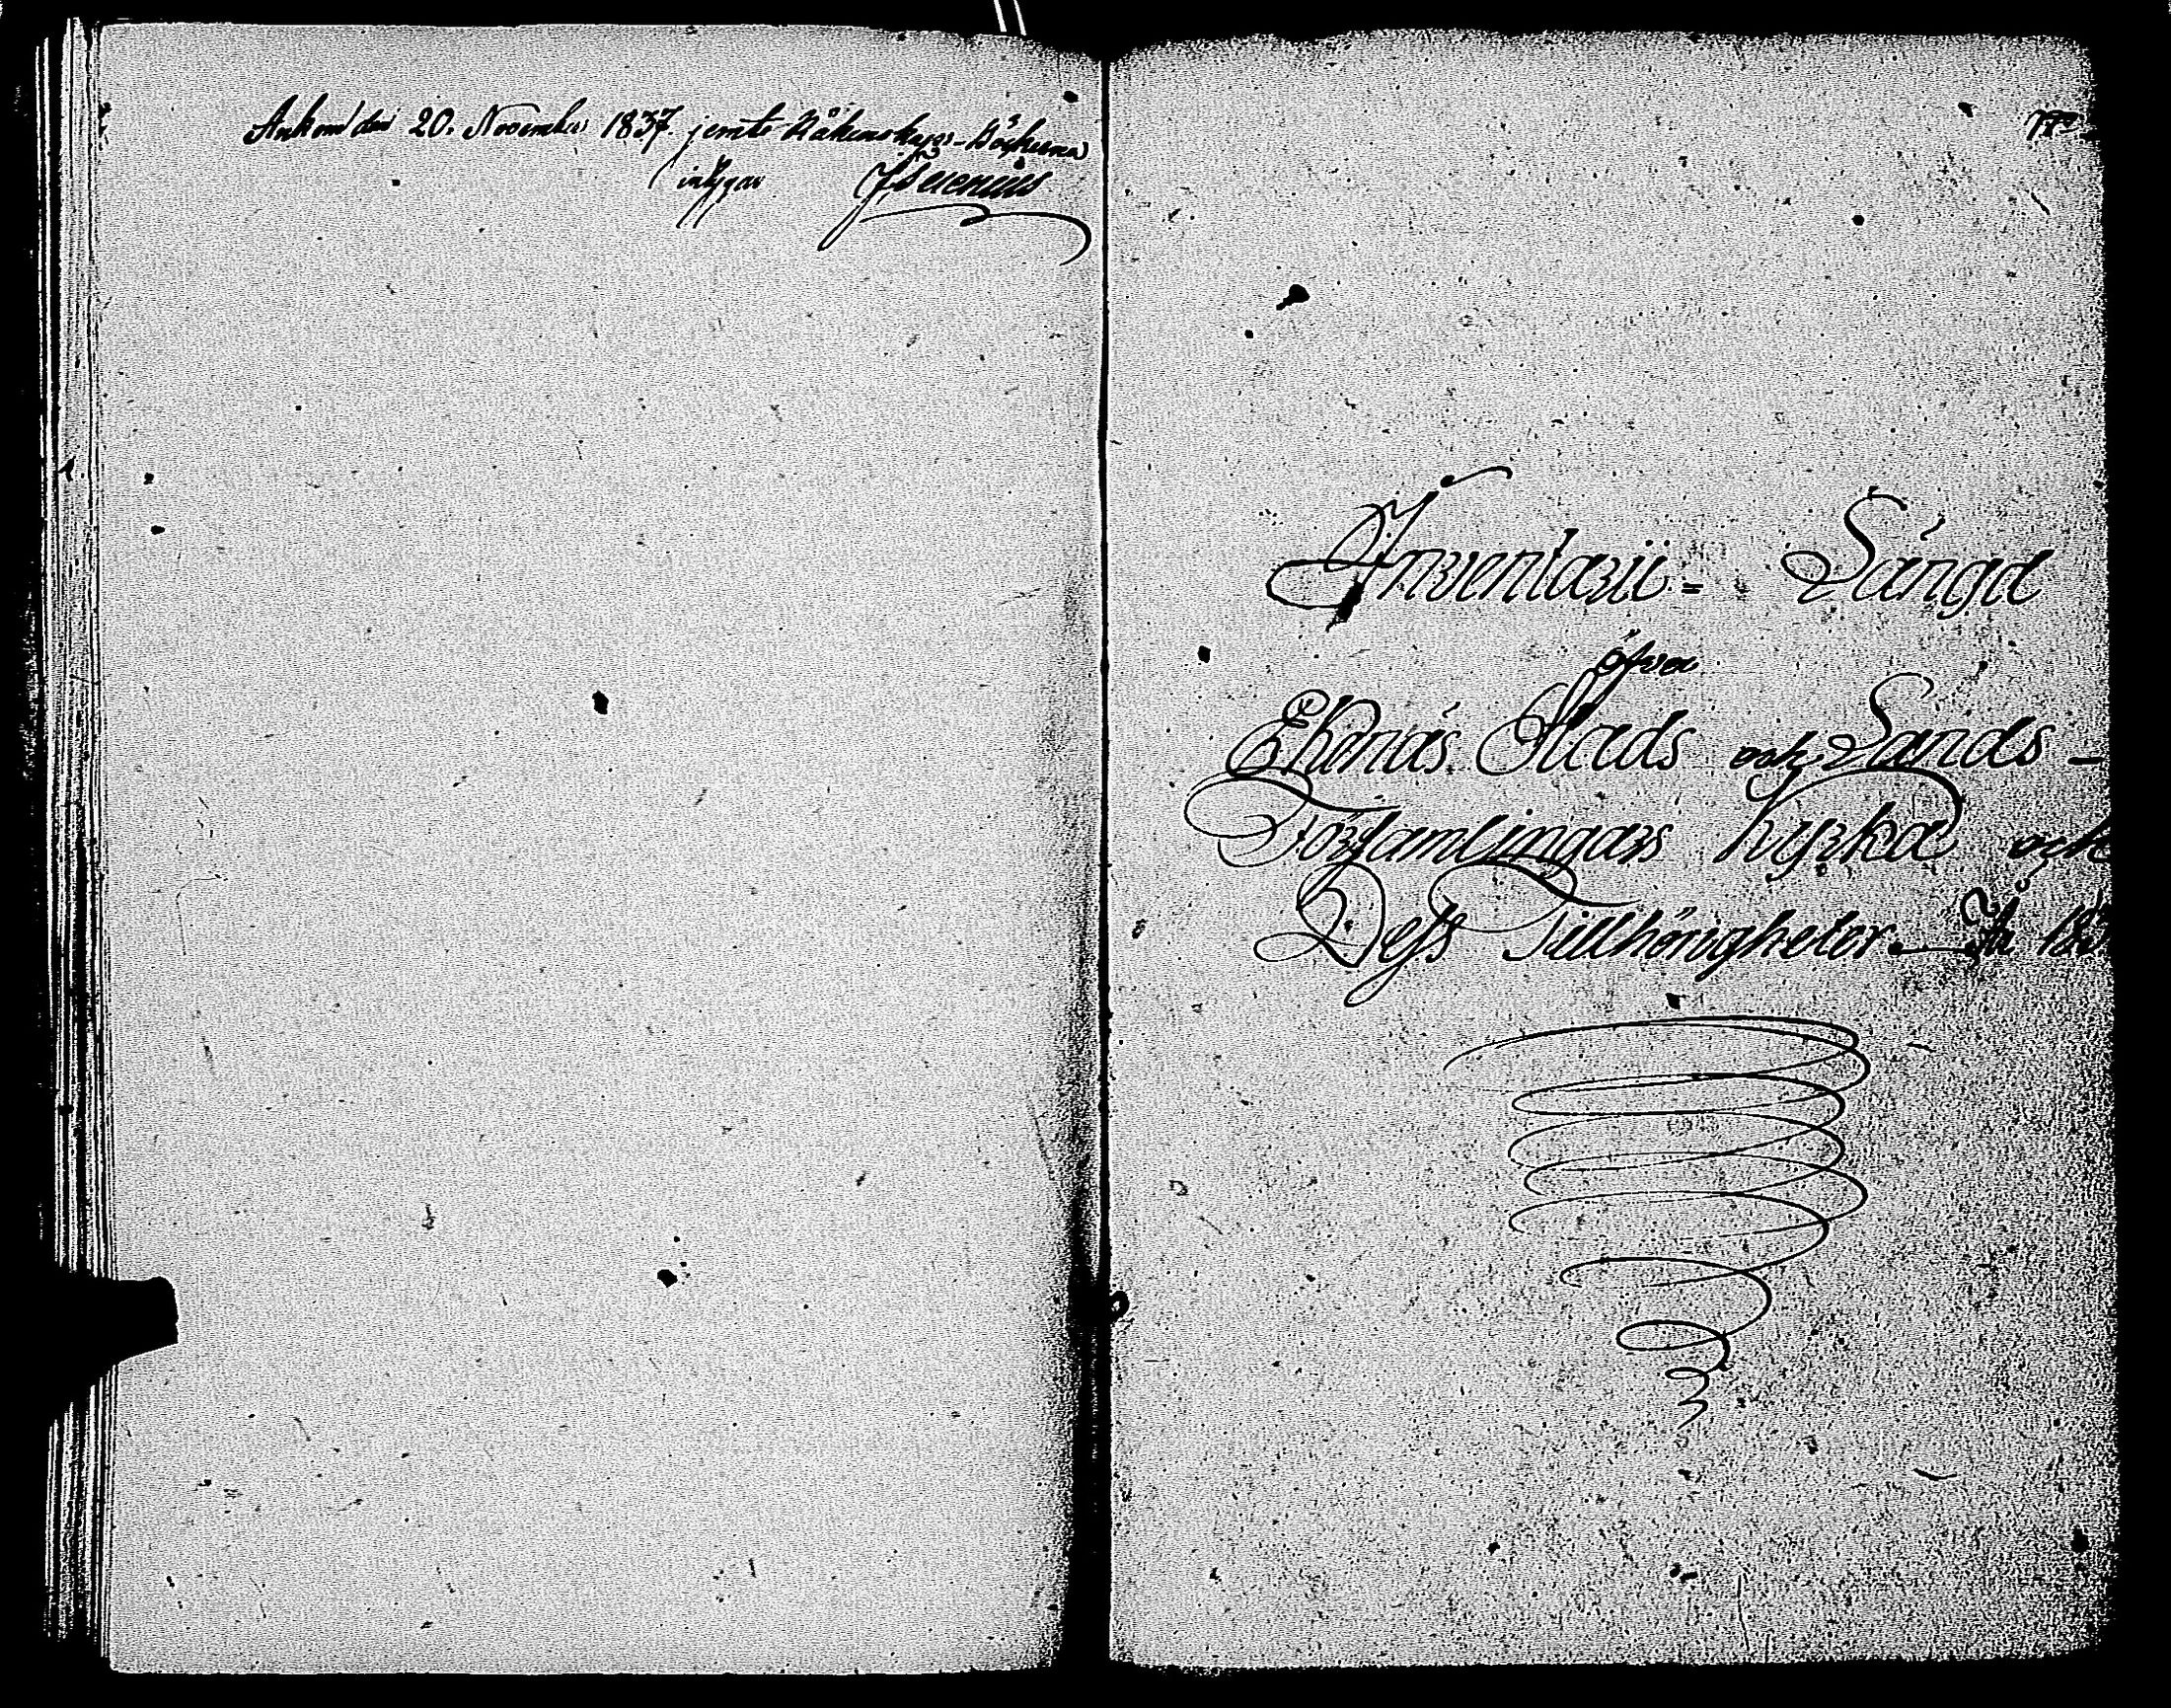 Ankom den 20. November 1837. jemte Räkenskaps-Böckerna
intygar
Inventarii= Längd
öfver
Ekenäs Stads och Lands-
Församlingars Kyrka och
Dess Tillhörigheter. År 18